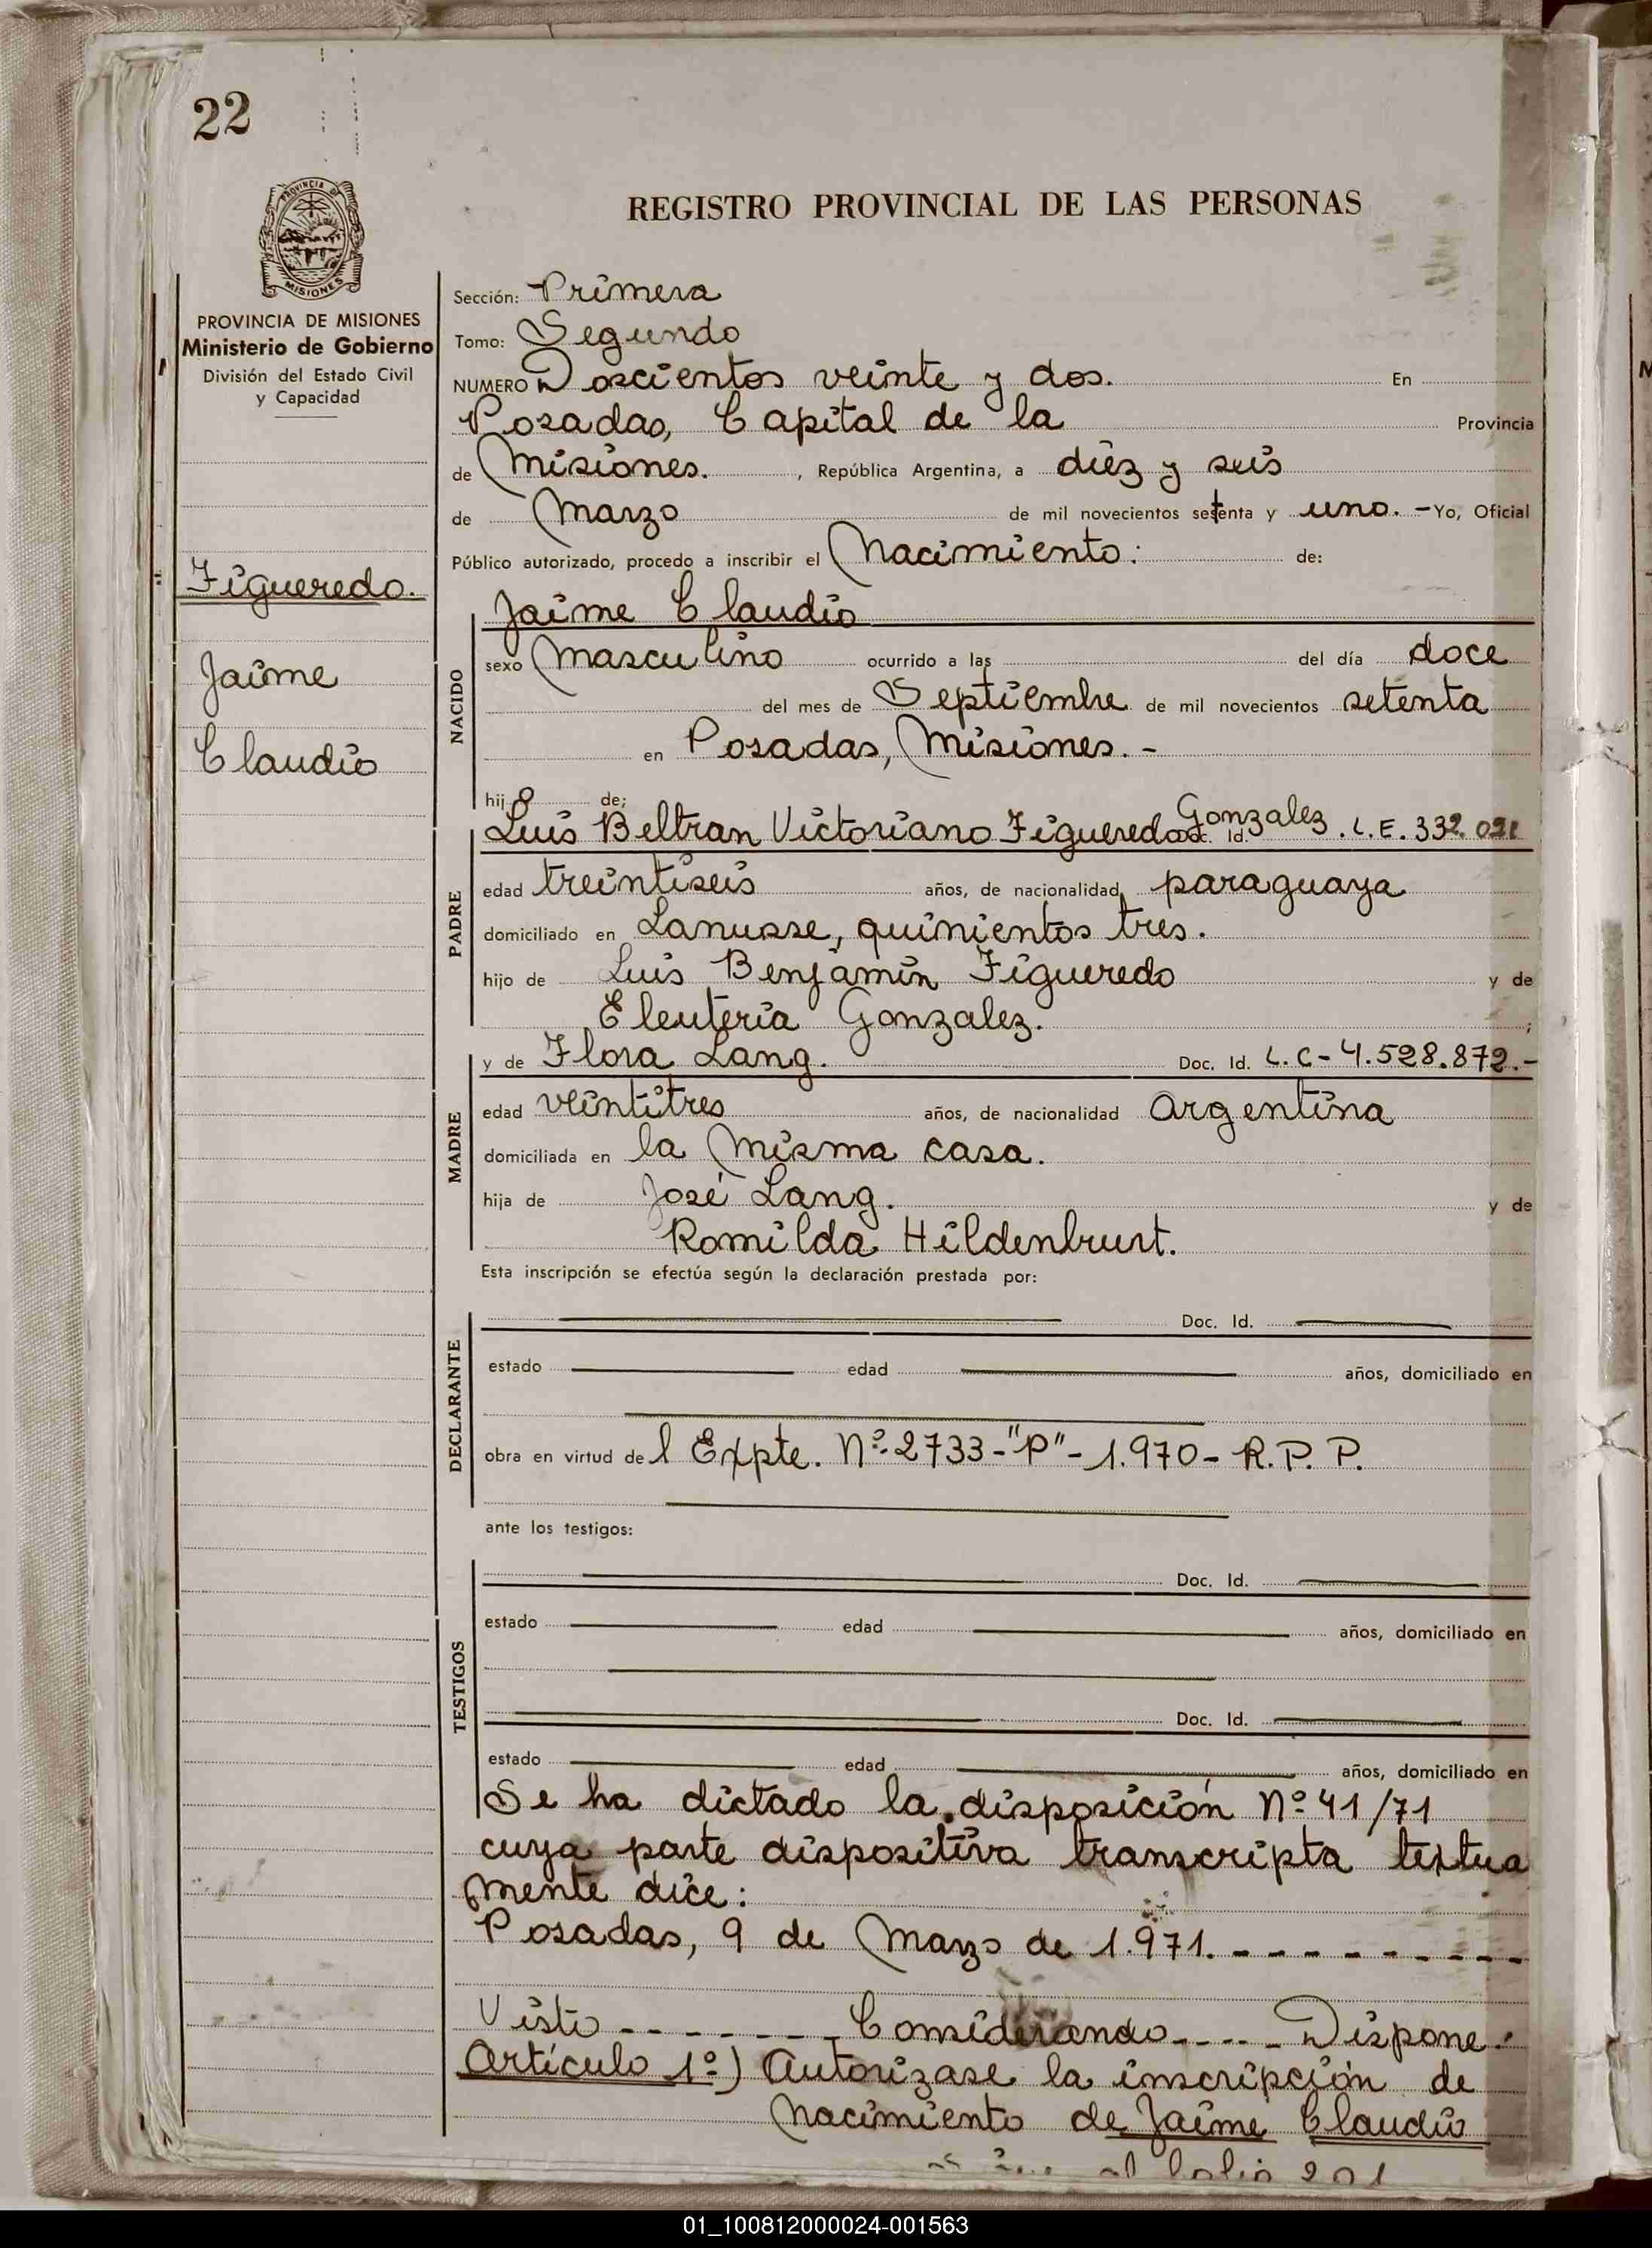 22
PROVINCIA DE
MISIONES
PROVINCIA DE MISIONES
Ministerio de Gobierno
División del Estado Civil
y Capacidad
Figueredo.
Jaime
Claudio
REGISTRO PROVINCIAL DE LAS PERSONAS
Sección: Primera
Tomo: Segundo
NUMERO Doscientos veinte y dos. En
Posadas, Capital de la Provincia
de Misiones. , República Argentina, a diez y seis
de Marzo de mil novecientos setenta y uno. - Yo, Oficial
Público autorizado, procedo a inscribir el Nacimiento: de:
Jaime Claudio
NACIDO
sexo Masculino ocurrido a las del día doce
del mes de Septiembre de mil novecientos setenta
en Posadas, Misiones. -
hijo de;
PADRE
Luis Beltran Victoriano Figueredo Gonzalez. L.E. 332.021
edad treintiseis años, de nacionalidad paraguaya
domiciliado en Lanusse, quinientos tres.
hijo de Luis Benjamín Figueredo y de
Eleuteria Gonzalez. ;
MADRE
y de Flora Lang. Doc. Id. L.C-4.528.872.-
edad veintitres años, de nacionalidad Argentina
domiciliada en la Misma casa.
hija de José Lang. y de
Romilda Hildenbrunt.
Esta inscripción se efectúa según la declaración prestada por:
DECLARANTE
Doc. Id.
estado edad años, domiciliado en
obra en virtud del Expte. Nº-2733-"P"-1.970-R.P.P.
ante los testigos:
TESTIGOS
Doc. Id.
estado edad años, domiciliado en
Doc. Id.
estado edad años, domiciliado en
Se ha dictado la disposición Nº 41/71
cuya parte dispositiva transcripta textua
mente dice:
Posadas, 9 de Marzo de 1.971. - - - - - - - - -
Visto - - - - - - - Considerando - - - - Dispone:
Artículo 1º) Autorizase la inscripción de
Nacimiento de Jaime Claudio
al folio 201
01_100812000024-001563